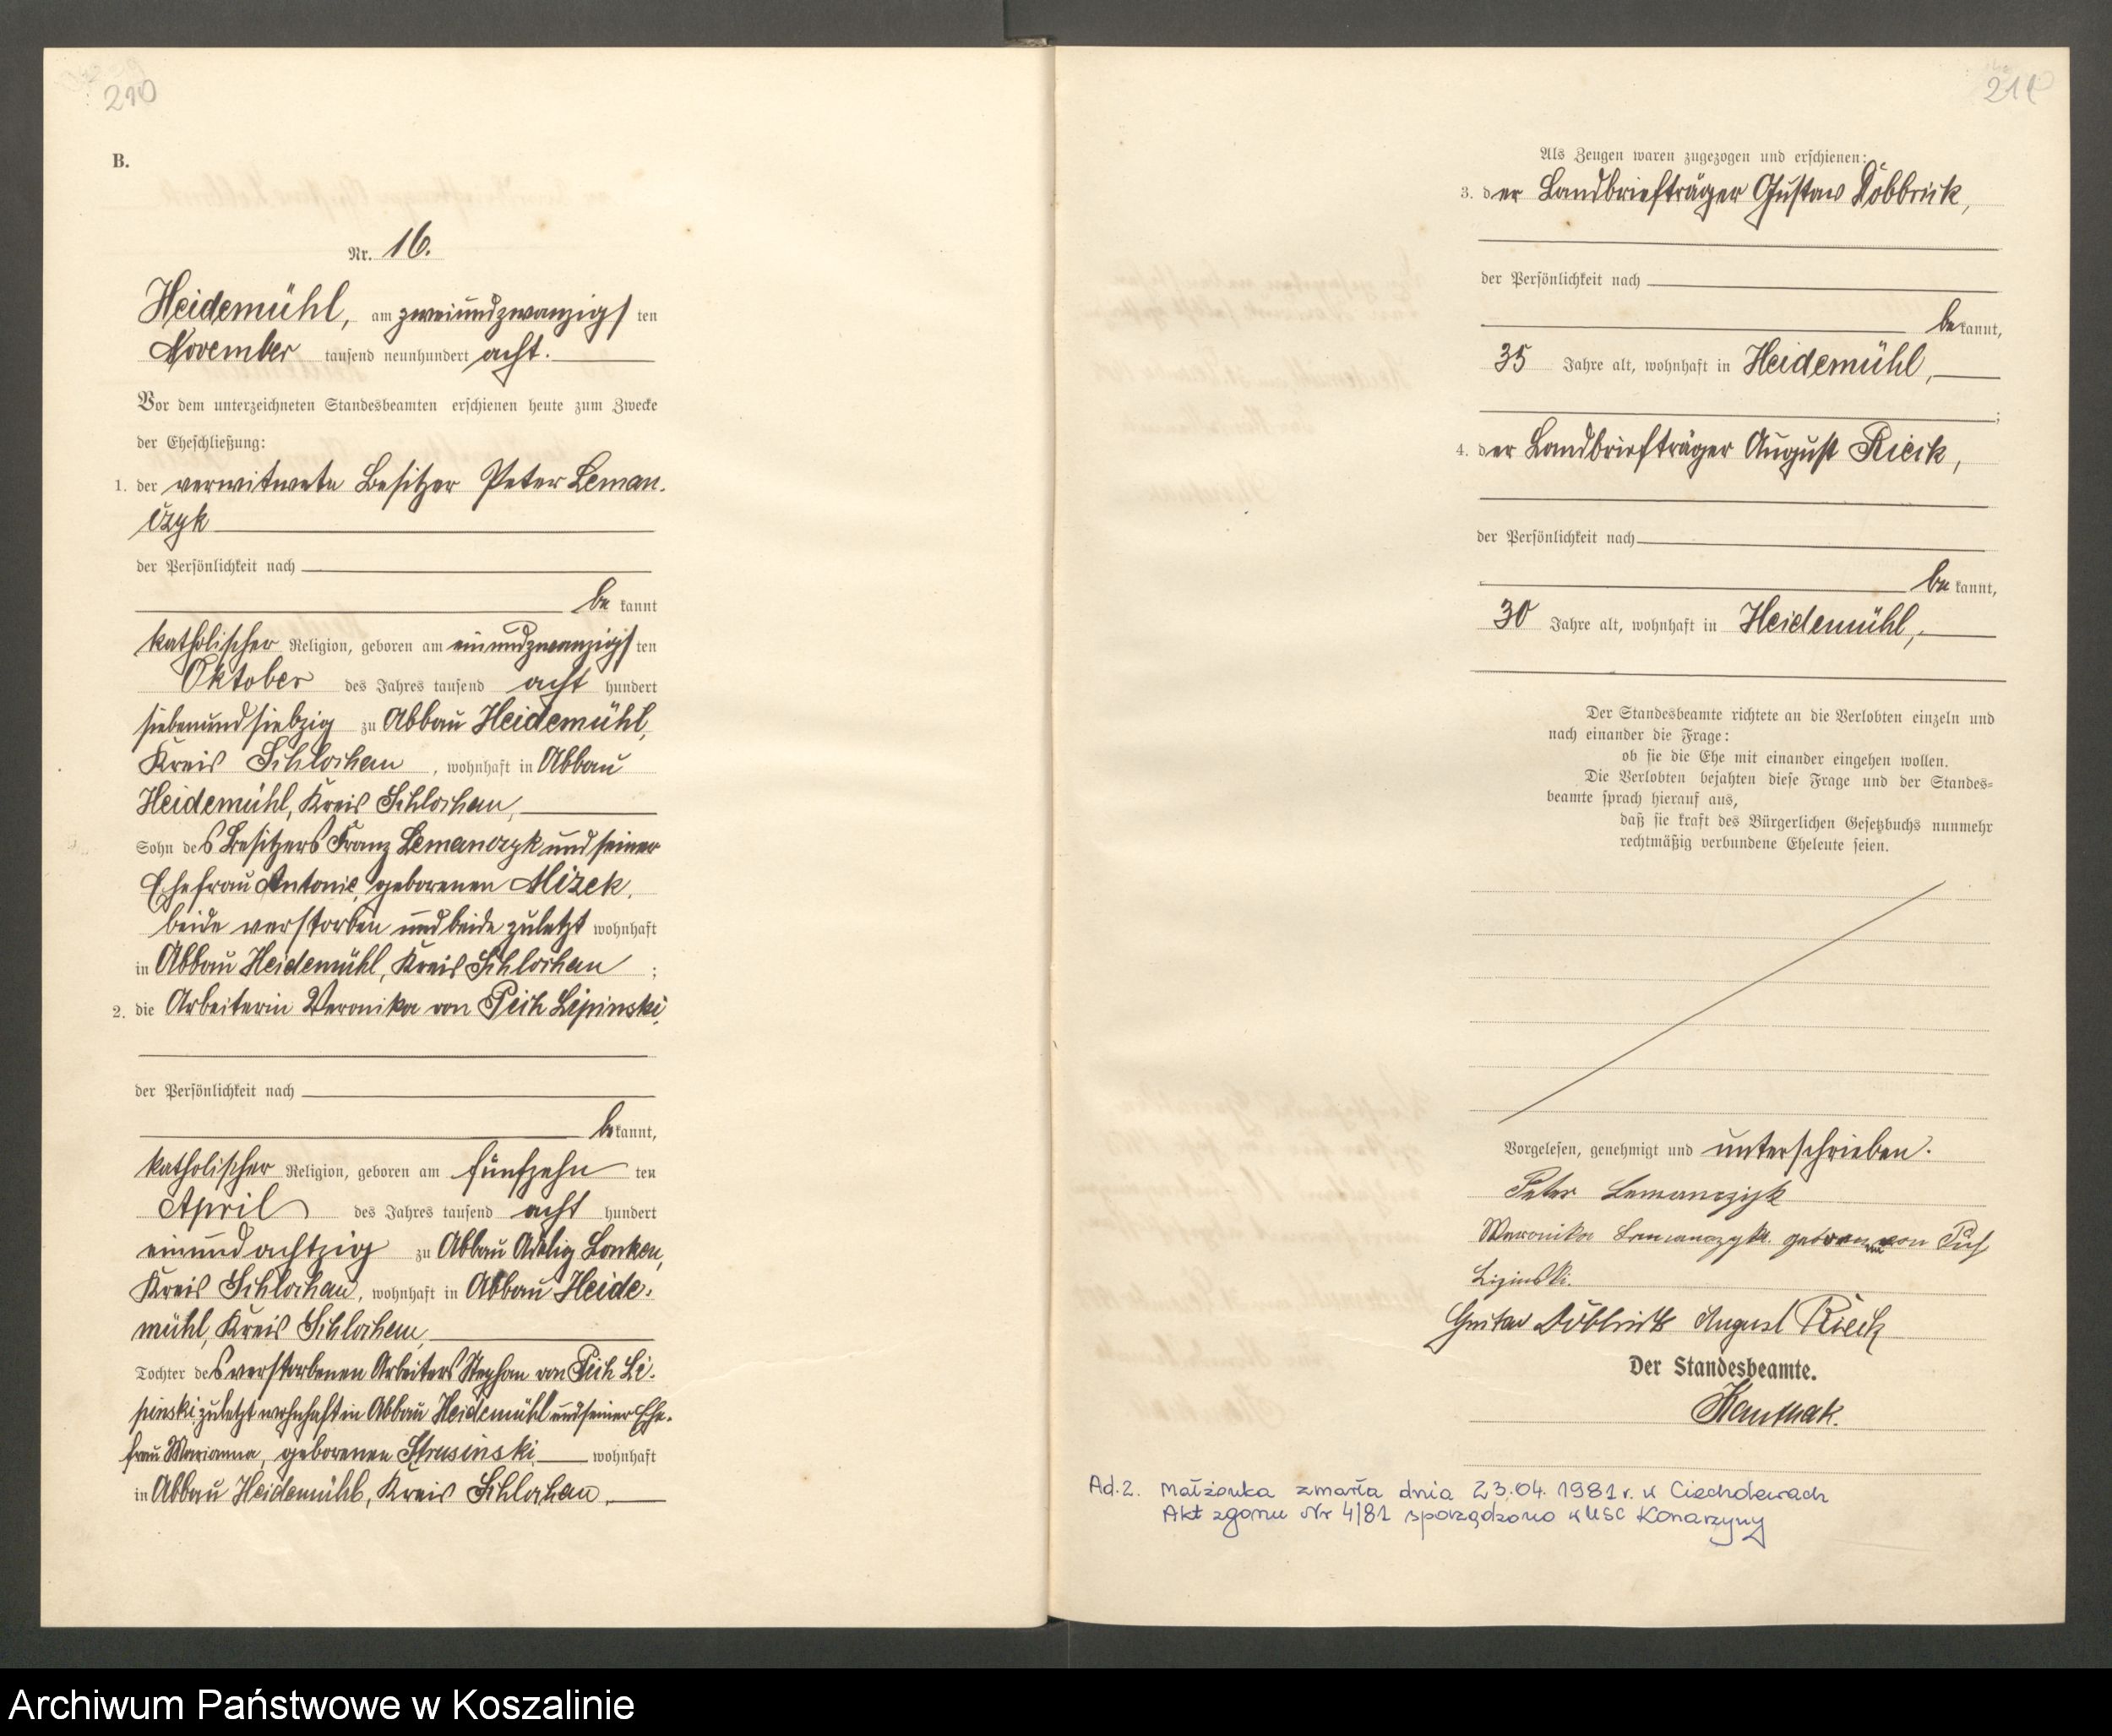 210
B.
Nr. 16.
Heidemühl, am zweiundzwanzigsten
November tausend neunhundert acht.
Vor dem unterzeichneten Standesbeamten erschienen heute zum Zwecke
der Eheschließung:
1. der verwitwete Besitzer Peter Leman-
czyk
der Persönlichkeit nach
bekannt
katholischer Religion, geboren am einundzwanzigsten
Oktober des Jahres tausend acht hundert
siebenundsiebzig zu Abbau Heidemühl,
Kreis Schlochau, wohnhaft in Abbau
Heidemühl, Kreis Schlochau,
Sohn des Besitzers Franz Lemanczyk und seiner
Ehefrau Antonie, geborenen Mizek,
beide verstorben und beide zuletzt wohnhaft
in Abbau Heidemühl, Kreis Schlochau ;
2. die Arbeiterin Veronika von Pich Lipinski,
der Persönlichkeit nach
bekannt,
katholischer Religion, geboren am fünfzehn ten
April des Jahres tausend acht hundert
einundachtzig zu Abbau Adelig Lonken,
Kreis Schlochau, wohnhaft in Abbau Heide-
mühl, Kreis Schlochau,
Tochter des verstorbenen Arbeiters Stephan von Pich Li-
pinski, zuletzt wohnhaft in Abbau Heidemühl und seiner Ehe-
frau Marianna, geborenen Strusinski, wohnhaft
in Abbau Heidemühl, Kreis Schlochau.
Als Zeugen waren zugezogen und erschienen:
3. der Landbriefträger Gustav Döbbrick,
der Persönlichkeit nach
bekannt,
35 Jahre alt, wohnhaft in Heidemühl,
;
4. der Landbriefträger August Rieck,
der Persönlichkeit nach
bekannt,
30 Jahre alt, wohnhaft in Heidemühl,
Der Standesbeamte richtete an die Verlobten einzeln und
nach einander die Frage:
ob sie die Ehe mit einander eingehen wollen.
Die Verlobten bejahten diese Frage und der Standes-
beamte sprach hierauf aus,
daß sie kraft des Bürgerlichen Gesetzbuchs nunmehr
rechtmäßig verbundene Eheleute seien.
Vorgelesen, genehmigt und unterschrieben.
Peter Lemanczyk
Weronika Lemanczyk geborene von Pich
Lipinski.
Gustav Döbbrick August Rieck
Der Standesbeamte.
Ad.2. Małżonka zmarła dnia 23.04.1981 r. w Ciecholewach
Akt zgonu Nr 4/81 sporządzono w USC Konarzyny
Archiwum Państwowe w Koszalinie